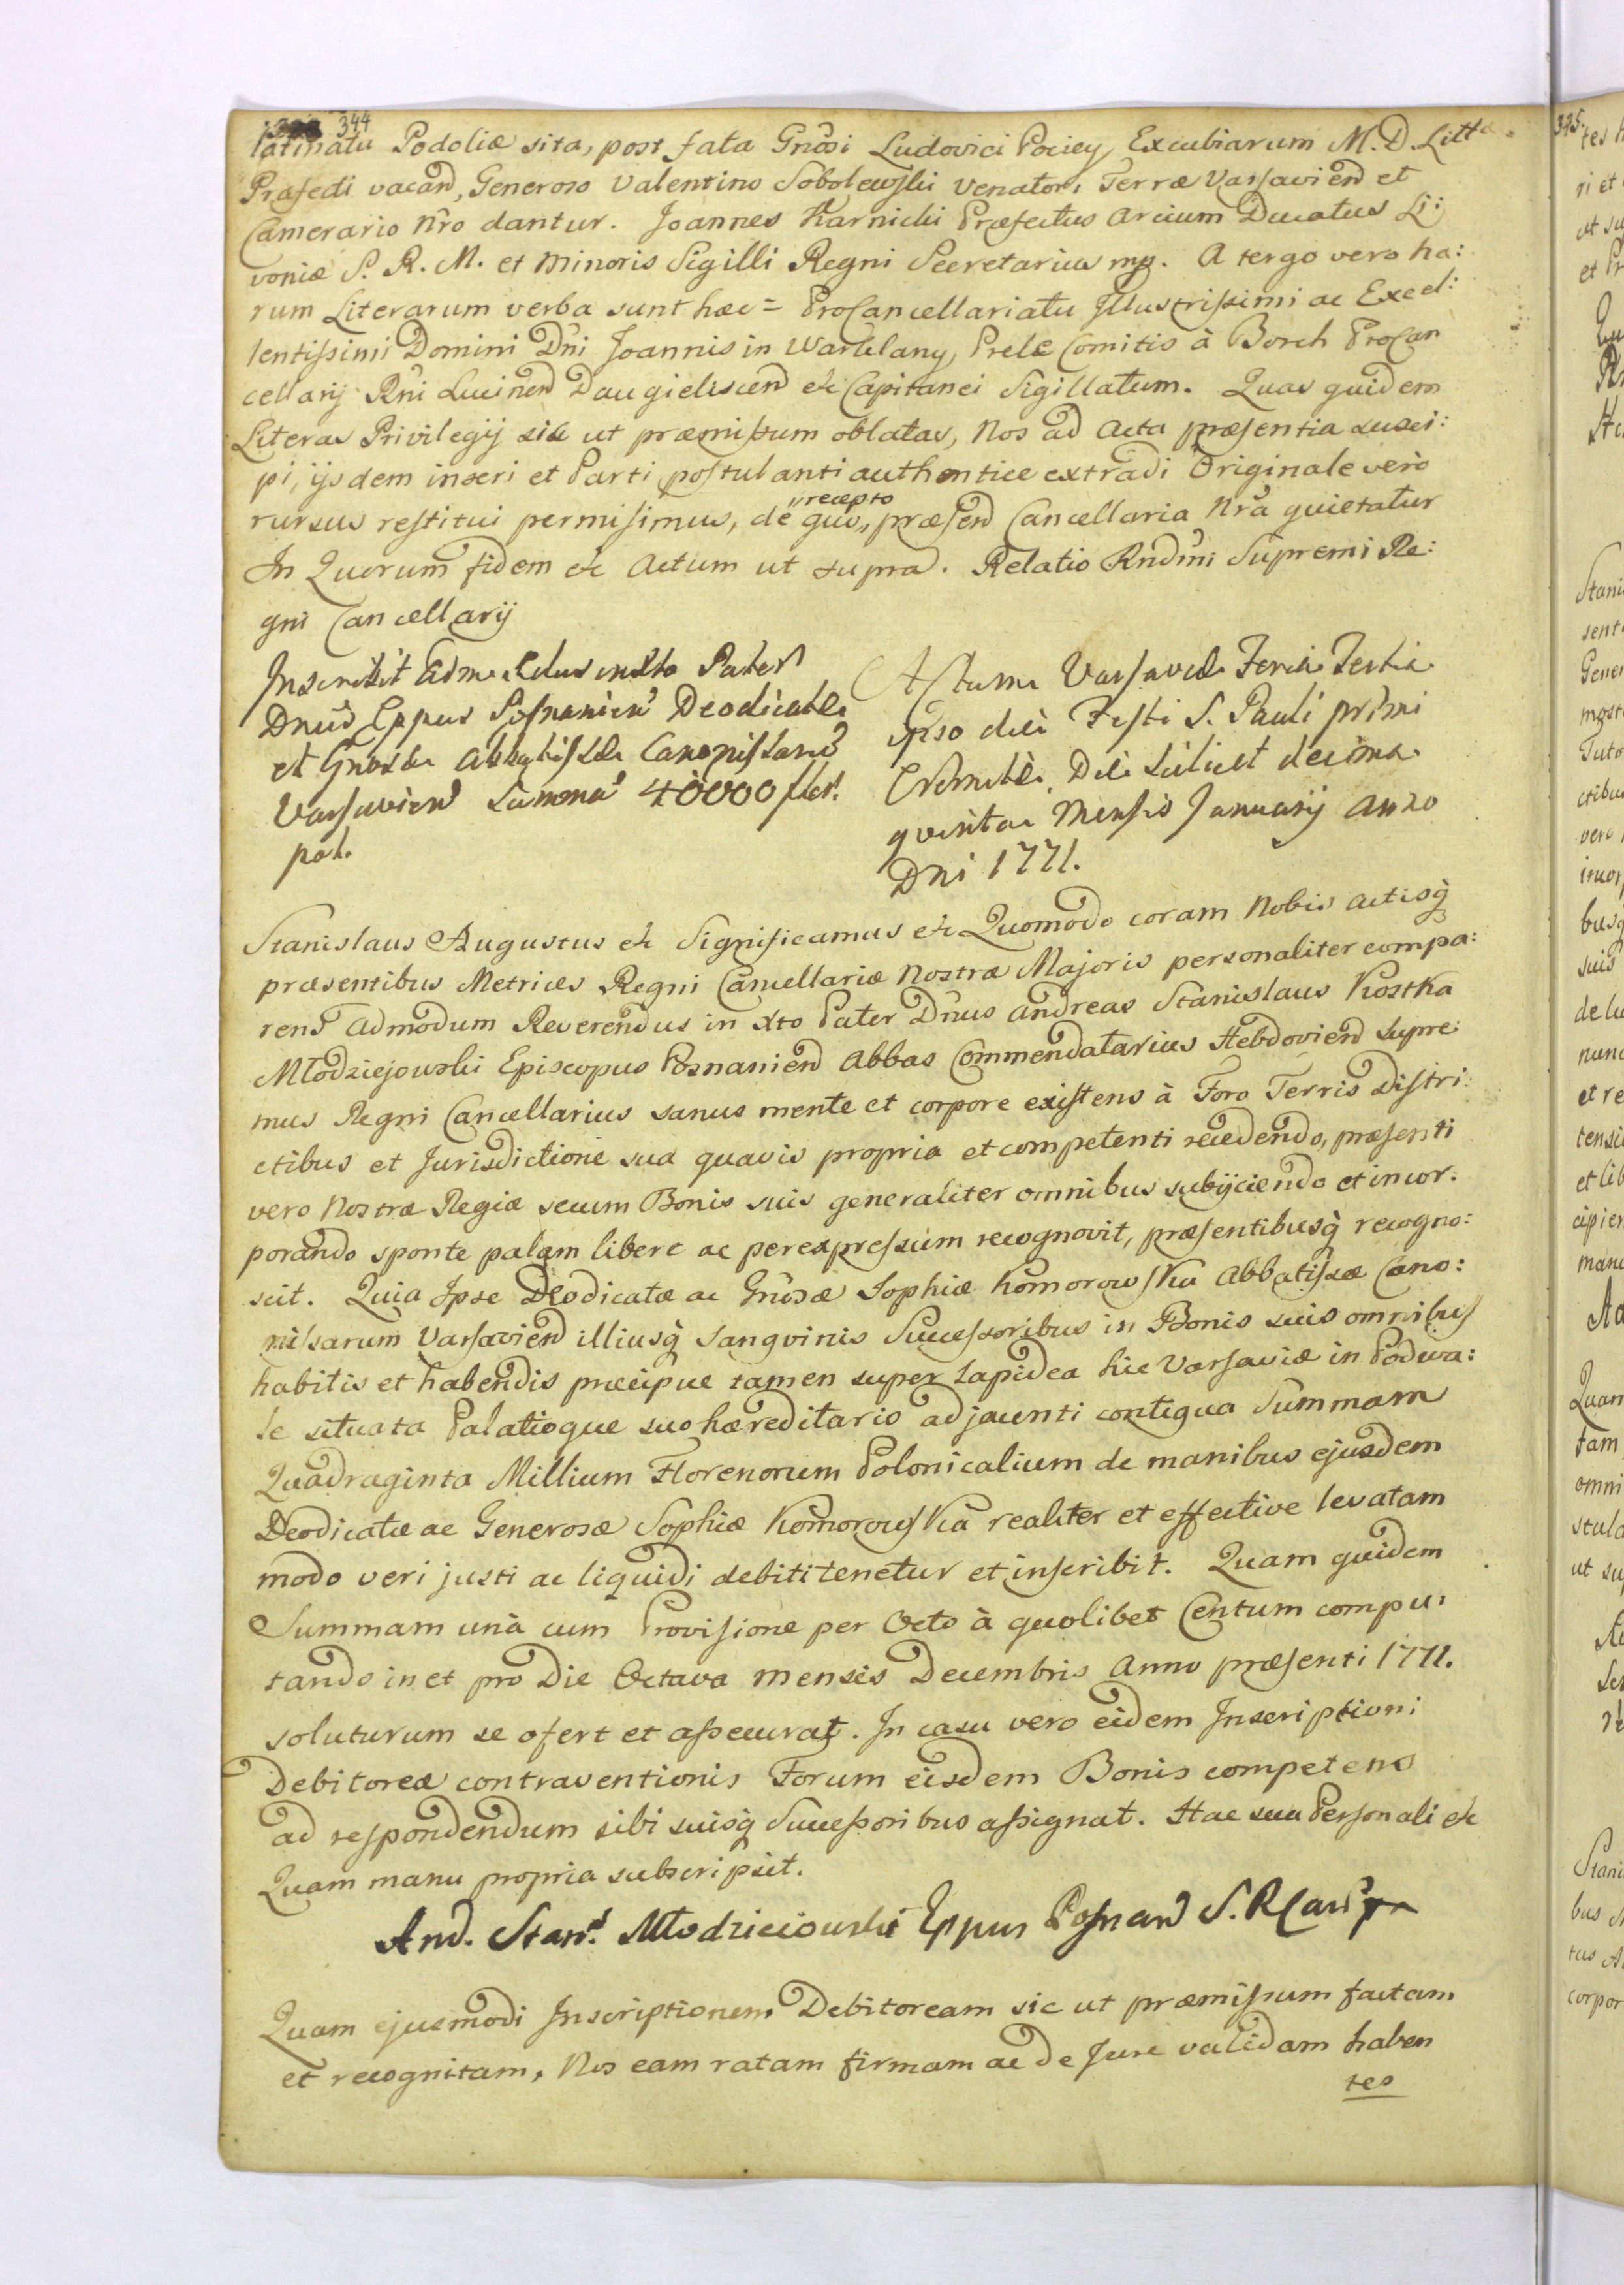 344
latinatu Podoliæ sita, post fata Gnosi Ludovici Pociey, Excubiarum M. D. Litt
Præfecti vacan, Generoso Valentino Sobolewski Venatori Terræ Varsavien et
Camerario Nro dantur. Joannes Karnicki Præfectus Arcium Ducatus Li:
voniæ S. R. M. et Minoris Sigilli Regni Secretarius mp. A tergo vero ha:
rum Literarum verba sunt hæc = ProCancellariatu Illustrissimi ac Excel:
lentissimi Domini Dni Joannis in Warklany, Prele Comitis à Borch ProCan
cellarij Rni Lucinen Daugielis cen etc Capitanei Sigillatum. Quas quidem
Literas Privilegij sic ut præmissum oblatas, Nos ad Acta præsentia susci:
pi, ijsdem inseri et Parti postulanti authentice extradi Originale vero
rursus restitui permisimus, de quo, præsen Cancellaria Nra quietatur
recepto
In Quorum fidem etc Actum ut supra. Relatio Rndmi Supremi Re:
gni Cancellarij
Inscribit Adm. Rdus in Xto Pater
Dnus Eppus Posnanien Deodicatæ
et Gnosæ Abbatissæ Canonissarū
Varsavien Summā 40000 flor.
pol.
Actum Varsaviæ Feria Tertia
ipso die Festi S. Pauli primi
Eremitæ, Die scilicet decima
quinta Mensis Januarij Anno
Dni 1771.
Stanislaus Augustus etc Significamus etc Quomodo coram Nobis Actisq
præsentibus Metrices Regni Cancellariæ Nostræ Majoris personaliter compa:
rens Admodum Reverendus in Xto Pater Dnus Andreas Stanislaus Kostka
Młodziejowski Episcopus Posnanien Abbas Commendatarius Hebdovien Supre
mus Regni Cancellarius sanus mente et corpore existens à Foro Terris Distri:
ctibus et Jurisdictione sua quavis propria et competenti recedendo, præsenti
vero Nostræ Regiæ secum Bonis suis generaliter omnibus subijciendo et incor:
porando sponte palam libere ac per expressum recognovit, præsentibusq recogno:
scit. Quia Ipse Deodicatæ ac Gnosæ Sophiæ Komorowska Abbatissæ Cano:
nissarum Varsavien illiusq Sangvinis Successoribus in Bonis suis omnibus
habitis et habendis præcipue tamen super Lapidea hic Varsaviæ in Podwa:
le situata Palatioque suo hæreditario adjacenti contigua Summam
Quadraginta Millium Florenorum Polonicalium de manibus ejusdem
Deodicatæ ac Generosæ Sophiæ Komorowska realiter et effective levatam
modo veri justi ac liquidi debiti tenetur et inscribit. Quam quidem
Summam unà cum Provisione per Octo à quolibet Centum compu:
tando in et pro Die Octava mensis Decembris Anno præsenti 1771.
soluturum se ofert et assecurat. In casu vero eidem Inscriptioni
Debitoreæ contraventionis Forum eisdem Bonis competens
ad respondendum sibi suisq Successoribus assignat. Hac sua Personali etc
Quam manu propria subscripsit.
And. Stans Młodzieiowski Eppus Posnan S. R Can
Quam ejusmodi Inscriptionem Debitoream sic ut præmissum factam
et recognitam, Nos eam ratam firmam ac de Jure validam haben
tes